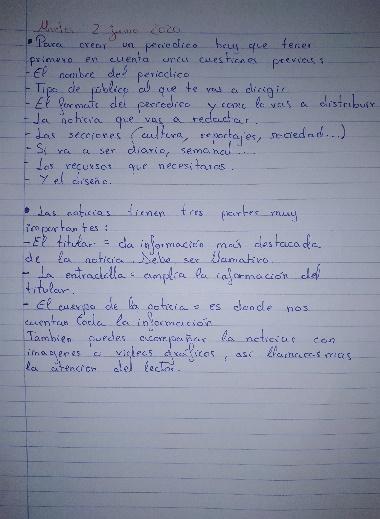 Martes 2 junio 2020
• Para crear un periodico hay que tener
primero en cuenta unas cuestiones previas:
- El nombre del periodico
- Tipo de público al que te vas a dirigir.
- El formato del periodico y como lo vas a distribuir
- La noticia que vas a redactar.
- Las secciones (cultura, reportajes, sociedad...)
- Si va a ser diario, semanal...
- Los recursos que necesitaras.
- Y el diseño.
• Las noticias tienen tres partes muy
importantes:
- El titular = da información mas destacada
de la noticia. Debe ser llamativo.
- La entradilla = amplia la información del
titular.
- El cuerpo de la noticia = es donde nos
cuentan toda la información
Tambien puedes acompañar la noticias con
imagenes o videos gráficos, asi llamaras mas
la atencion del lector.